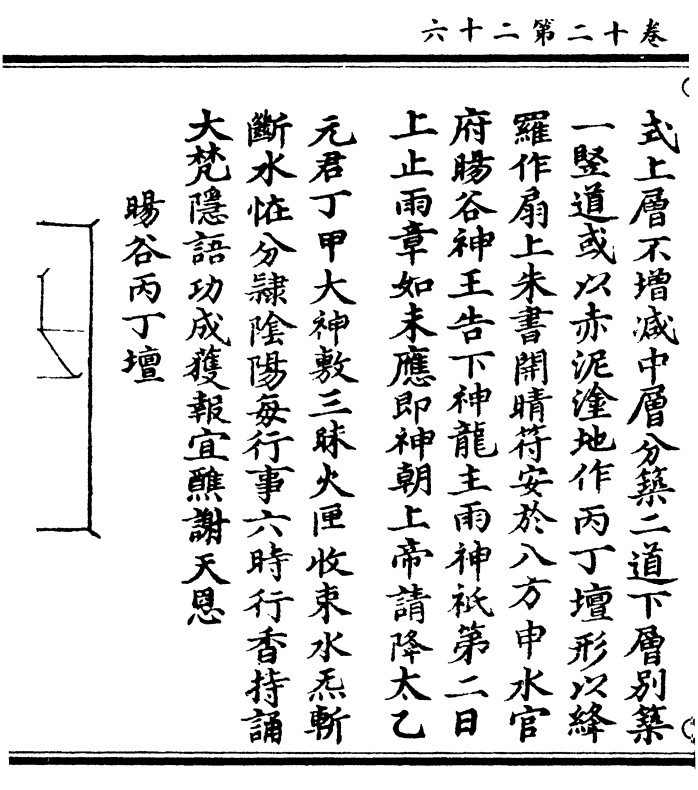 卷十二第二十六
式上層不增減中層分築二道下層別築
一竪道或以赤泥塗地作丙丁壇形以絳
羅作扇上朱書開晴符安於八方申水官
府暘谷神王告下神龍主雨神祇第二日
上止雨章如未應即神朝上帝請降太乙
元君丁甲大神敷三昧火匣收束水炁斬
斷水怪分隷陰陽每行事六時行香持誦
大梵隱語功成獲報宜醮謝天恩
暘谷丙丁壇